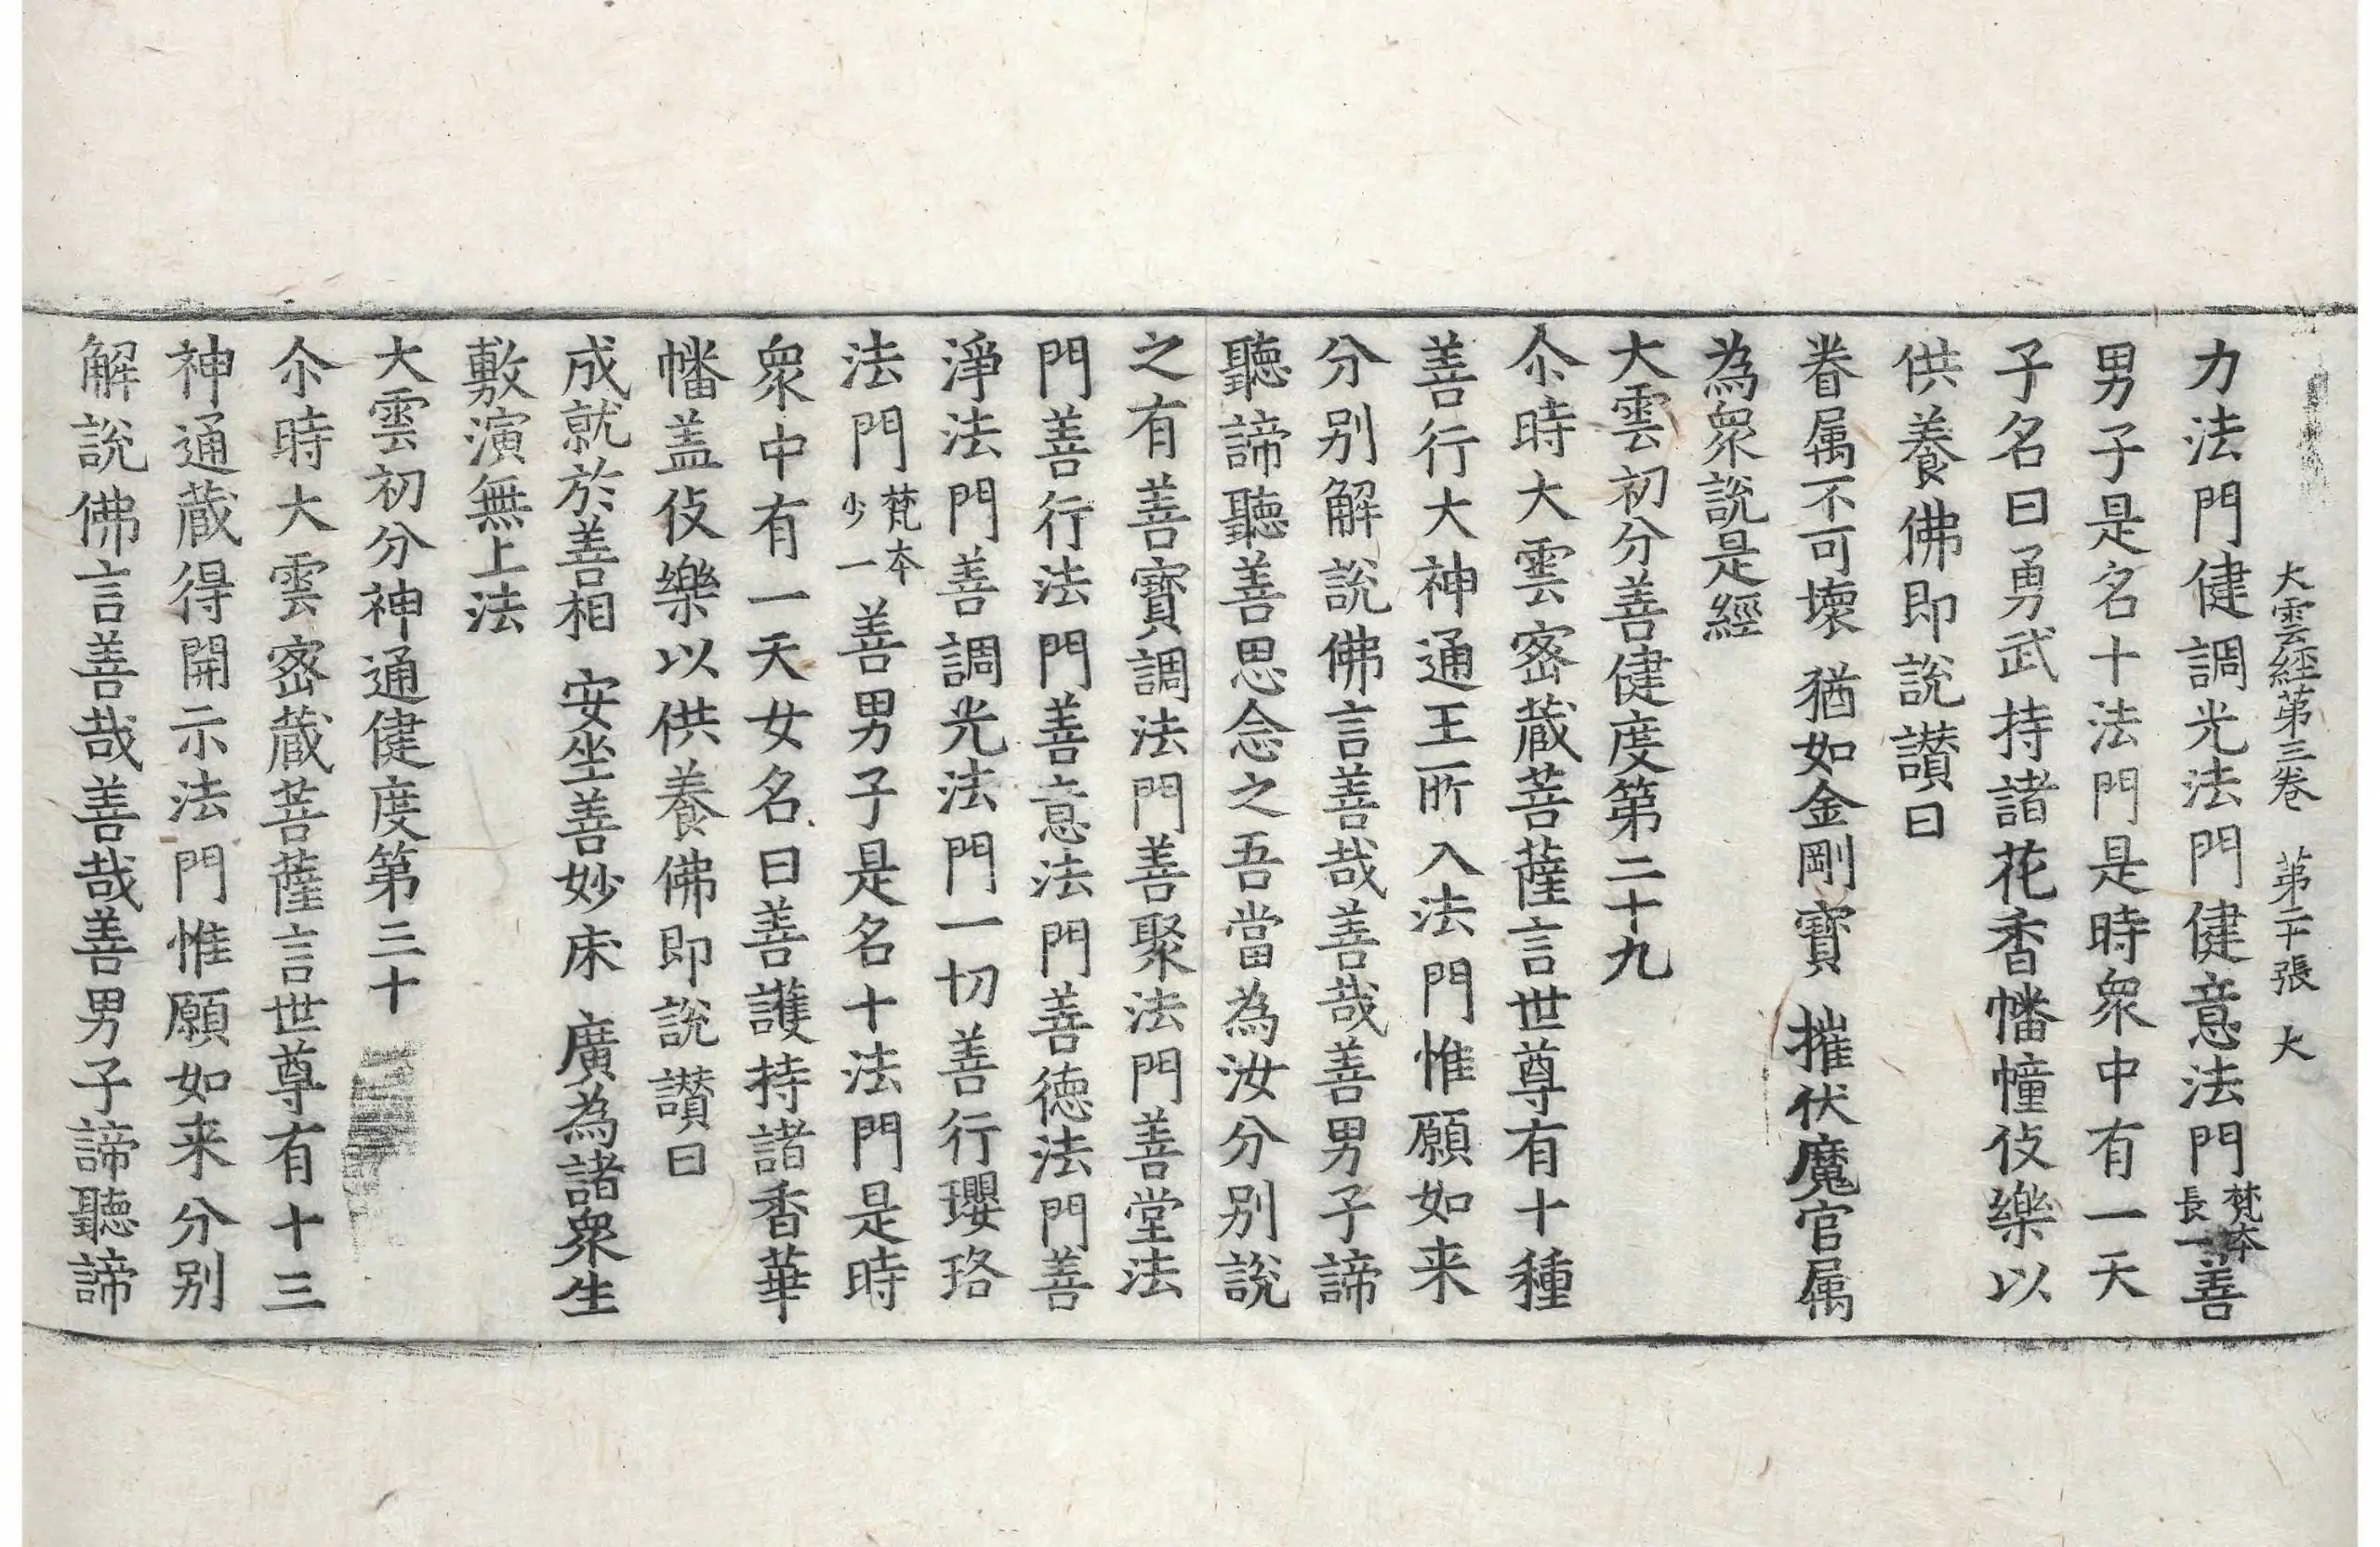 大雲經第三卷　第二十張　大
力法門健調光法門健意法門梵本長一善
男子是名十法門是時衆中有一天
子名曰勇武持諸花香幡幢伎樂以
供養佛即說讃曰
眷属不可壞　猶如金剛寶　摧伏魔官属
為衆說是經
大雲初分善健度第二十九
尒時大雲宻蔵菩薩言世尊有十種
善行大神通王所入法門惟願如来
分别解說佛言善哉善哉善男子諦
聽諦聽善思念之吾當為汝分别說
之有善寶調法門善聚法門善堂法
門善行法門善意法門善德法門善
淨法門善調光法門一切善行瓔珞
法門梵本少一善男子是名十法門是時
衆中有一天女名曰善護持諸香華
幡盖伎樂以供養佛即說讃曰
成就於善相　安坐善妙床　廣為諸衆生
敷演無上法
大雲初分神通健度第三十
尒時大雲宻蔵菩薩言世尊有十三
神通蔵得開示法門惟願如来分别
解說佛言善哉善哉善男子諦聽諦